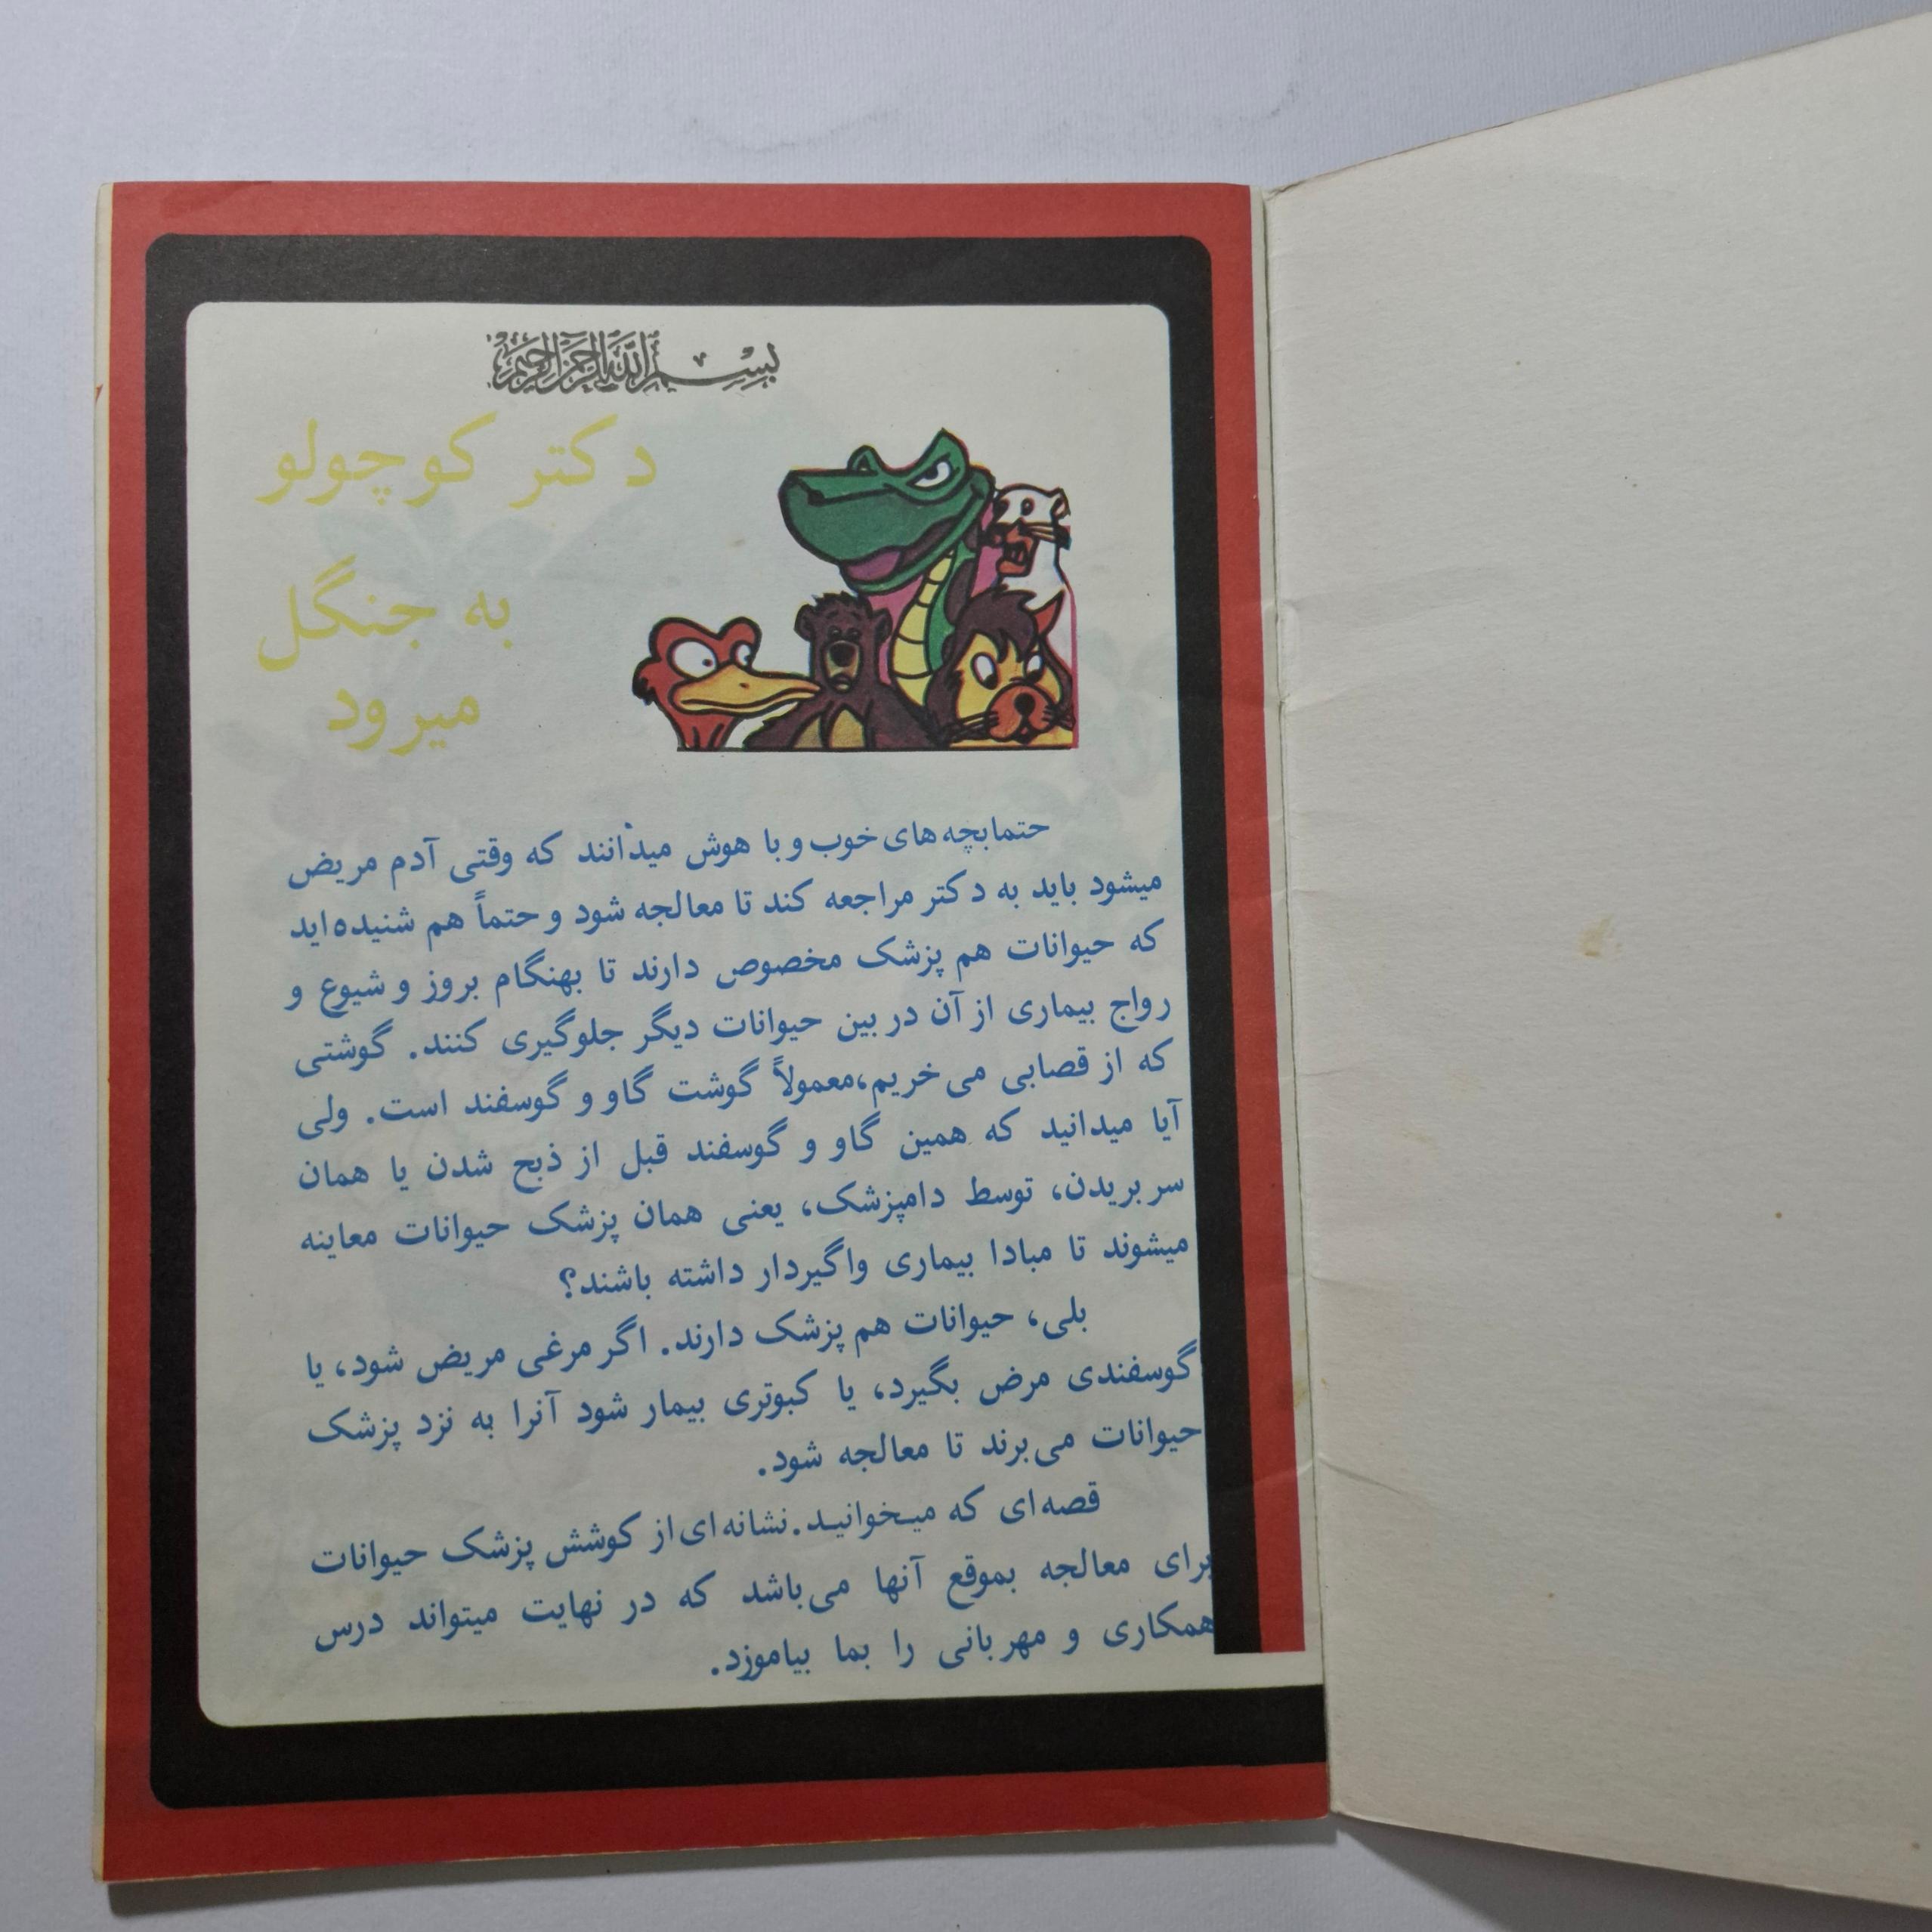 بسم الله الرحمن الرحیم
دکتر کوچولو
به جنگل
میرود
حتمابچه های خوب و با هوش میدانند که وقتی آدم مریض
میشود باید به دکتر مراجعه کند تا معالجه شود و حتماً هم شنیده اید
که حیوانات هم پزشک مخصوص دارند تا بهنگام بروز و شیوع و
رواج بیماری از آن در بین حیوانات دیگر جلوگیری کنند. گوشتی
که از قصابی می خریم،معمولاً گوشت گاو و گوسفند است. ولی
آیا میدانید که همین گاو و گوسفند قبل از ذبح شدن یا همان
سر بریدن، توسط دامپزشک، یعنی همان پزشک حیوانات معاینه
میشوند تا مبادا بیماری واگیردار داشته باشند؟
بلی، حیوانات هم پزشک دارند. اگر مرغی مریض شود، یا
گوسفندی مرض بگیرد، یا کبوتری بیمار شود آنرا به نزد پزشک
حیوانات می‌برند تا معالجه شود.
قصه ای که میـخوانیـد.نشانه ای از کوشش پزشک حیوانات
برای معالجه بموقع آنها می‌باشد که در نهایت میتواند درس
همکاری و مهربانی را بما بیاموزد.